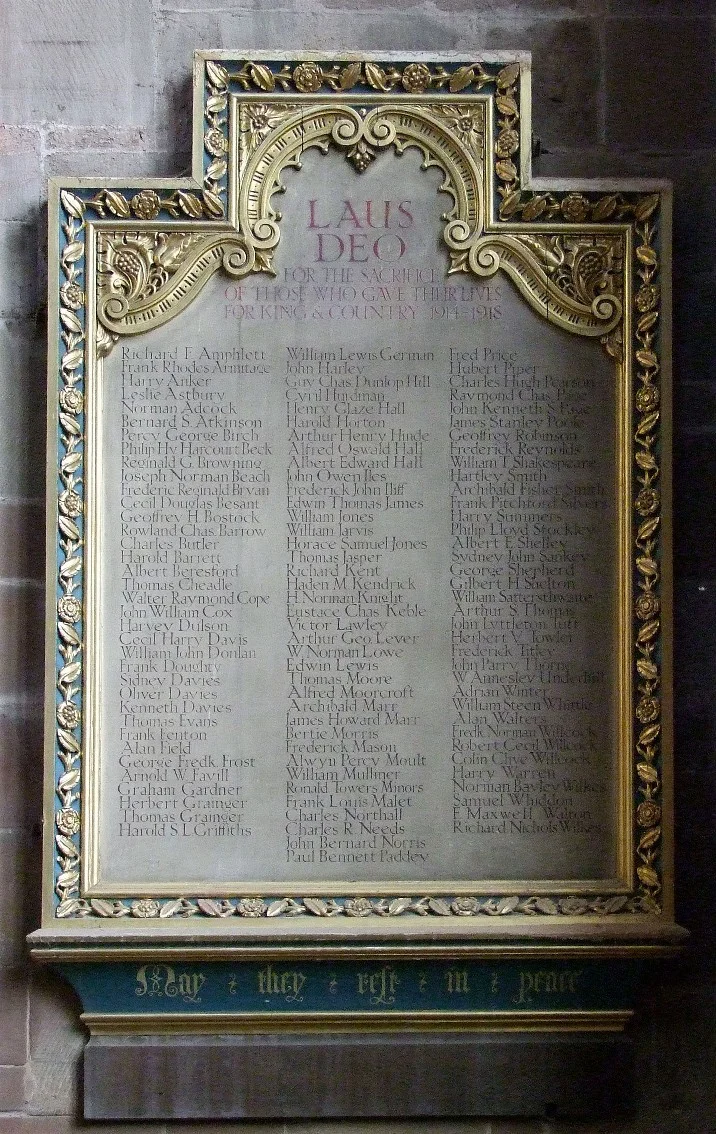 LAUS
DEO
FOR THE SACRIFICE
OF THOSE WHO GAVE THEIR LIVES
FOR KING & COUNTRY 1914-1918
Richard F. Amphlett
Frank Rhodes Armitage
Harry Anker
Leslie Astbury
Norman Adcock
Bernard S. Atkinson
Percy George Birch
Philip Hy Harcourt Beck
Reginald G. Browning
Joseph Norman Beach
Frederic Reginald Bryan
Cecil Douglas Besant
Geoffrey H. Bostock
Rowland Chas Barrow
Charles Butler
Harold Barrett
Albert Beresford
Thomas Cheadle
Walter Raymond Cope
John William Cox
Harvey Dulson
Cecil Harry Davis
William John Donlan
Frank Doughty
Sidney Davies
Oliver Davies
Kenneth Davies
Thomas Evans
Frank Fenton
Alan Field
George Fredk Frost
Arnold W. Favill
Graham Gardner
Herbert Grainger
Thomas Grainger
Harold S L Griffiths
William Lewis German
John Harley
Guy Chas Dunlop Hill
Cyril Hurdman
Henry Glaze Hall
Harold Horton
Arthur Henry Hinde
Alfred Oswald Hall
Albert Edward Hall
John Owen Iles
Frederick John Iliff
Edwin Thomas James
William Jones
William Jarvis
Horace Samuel Jones
Thomas Jasper
Richard Kent
Haden M. Kendrick
H. Norman Knight
Eustace Chas Keble
Victor Lawley
Arthur Geo. Lever
W. Norman Lowe
Edwin Lewis
Thomas Moore
Alfred Moorcroft
Archibald Marr
James Howard Marr
Bertie Morris
Frederick Mason
Alwyn Percy Moult
William Mulliner
Ronald Towers Minors
Frank Louis Malet
Charles Northall
Charles R. Needs
John Bernard Norris
Paul Bennett Paddey
Fred Price
Hubert Piper
Charles Hugh Pearson
Raymond Chas Page
John Kenneth S. Page
James Stanley Poole
Geoffrey Robinson
Frederick Reynolds
William T. Shakespeare
Hartley Smith
Archibald Fisher Smith
Frank Pitchford Silvers
Harry Summers
Philip Lloyd Stockley
Albert E. Shelley
Sydney John Sankey
George Shepherd
Gilbert H. Shelton
William Satterthwaite
Arthur S. Thomas
John Lyttleton Tutt
Herbert V. Towler
Frederick Titley
John Parry Thorne
W. Annesley Underhill
Adrian Winter
William Steen Whittle
Alan Walters
Fredk Norman Willcock
Robert Cecil Willcock
Colin Clive Willcock
Harry Warren
Norman Bayley Wilkes
Samuel Whiddon
E. Maxwell Walton
Richard Nichols Wilkes
May they rest in peace